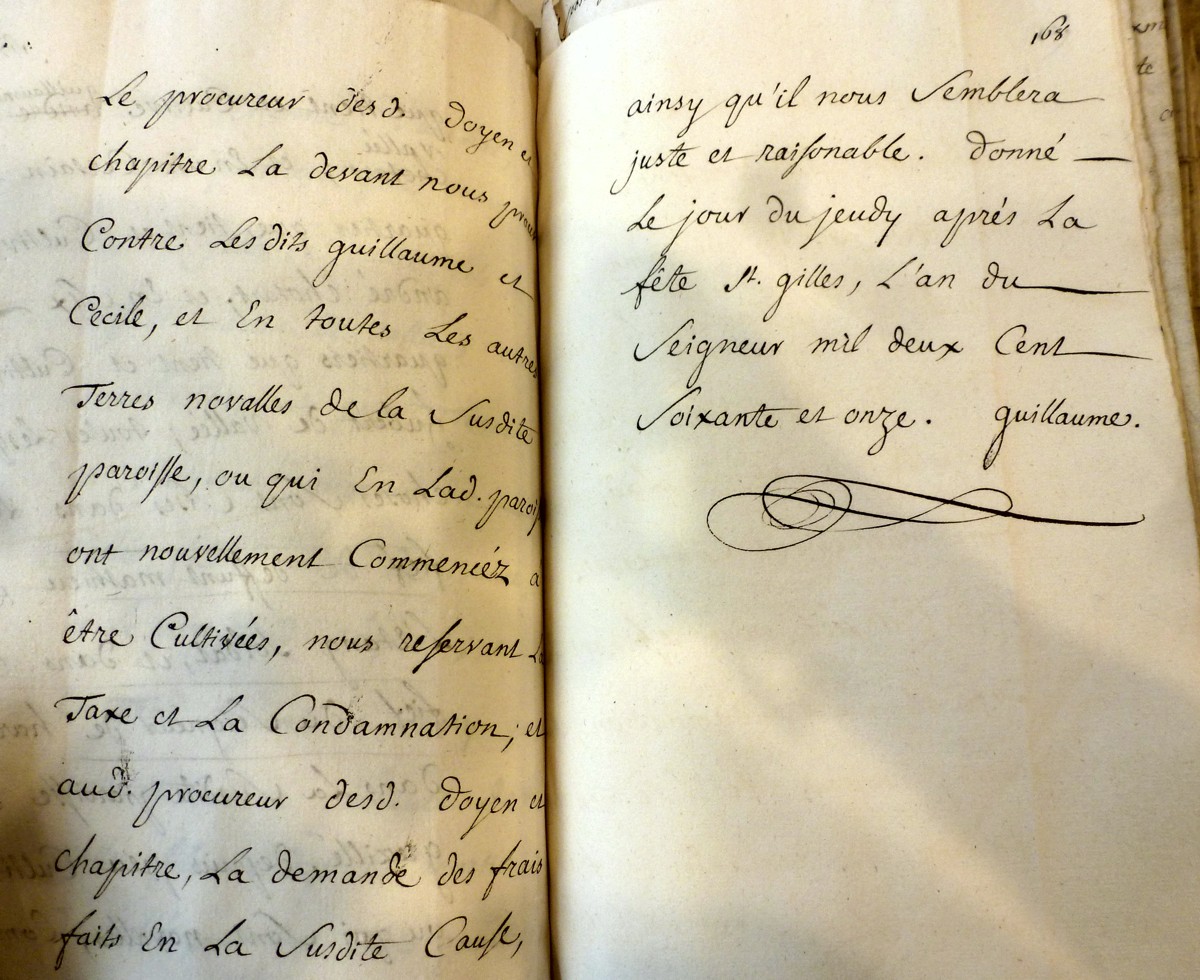 Le procureur desd. Doyen et
chapitre La devant nous
Contre Lesdits guillaume et
Cecile, et En toutes Les autres
Terres novalles de la Susdite
paroisse, ou qui En Lad.
ont nouvellement Commenćéz a
être Cultivées, nous reservant La
Taxe et La Condamnation; et
aud. procureur desd. Doyen et
chapitre, La demande des frais
faits En La Susdite Cause,
168
ainsy qu'il nous Semblera
juste et raisonable. Donné
Le jour du jeudy aprés La
fête St. gilles, L'an du
Seigneur mil deux Cent
Soixante et onze. guillaume.